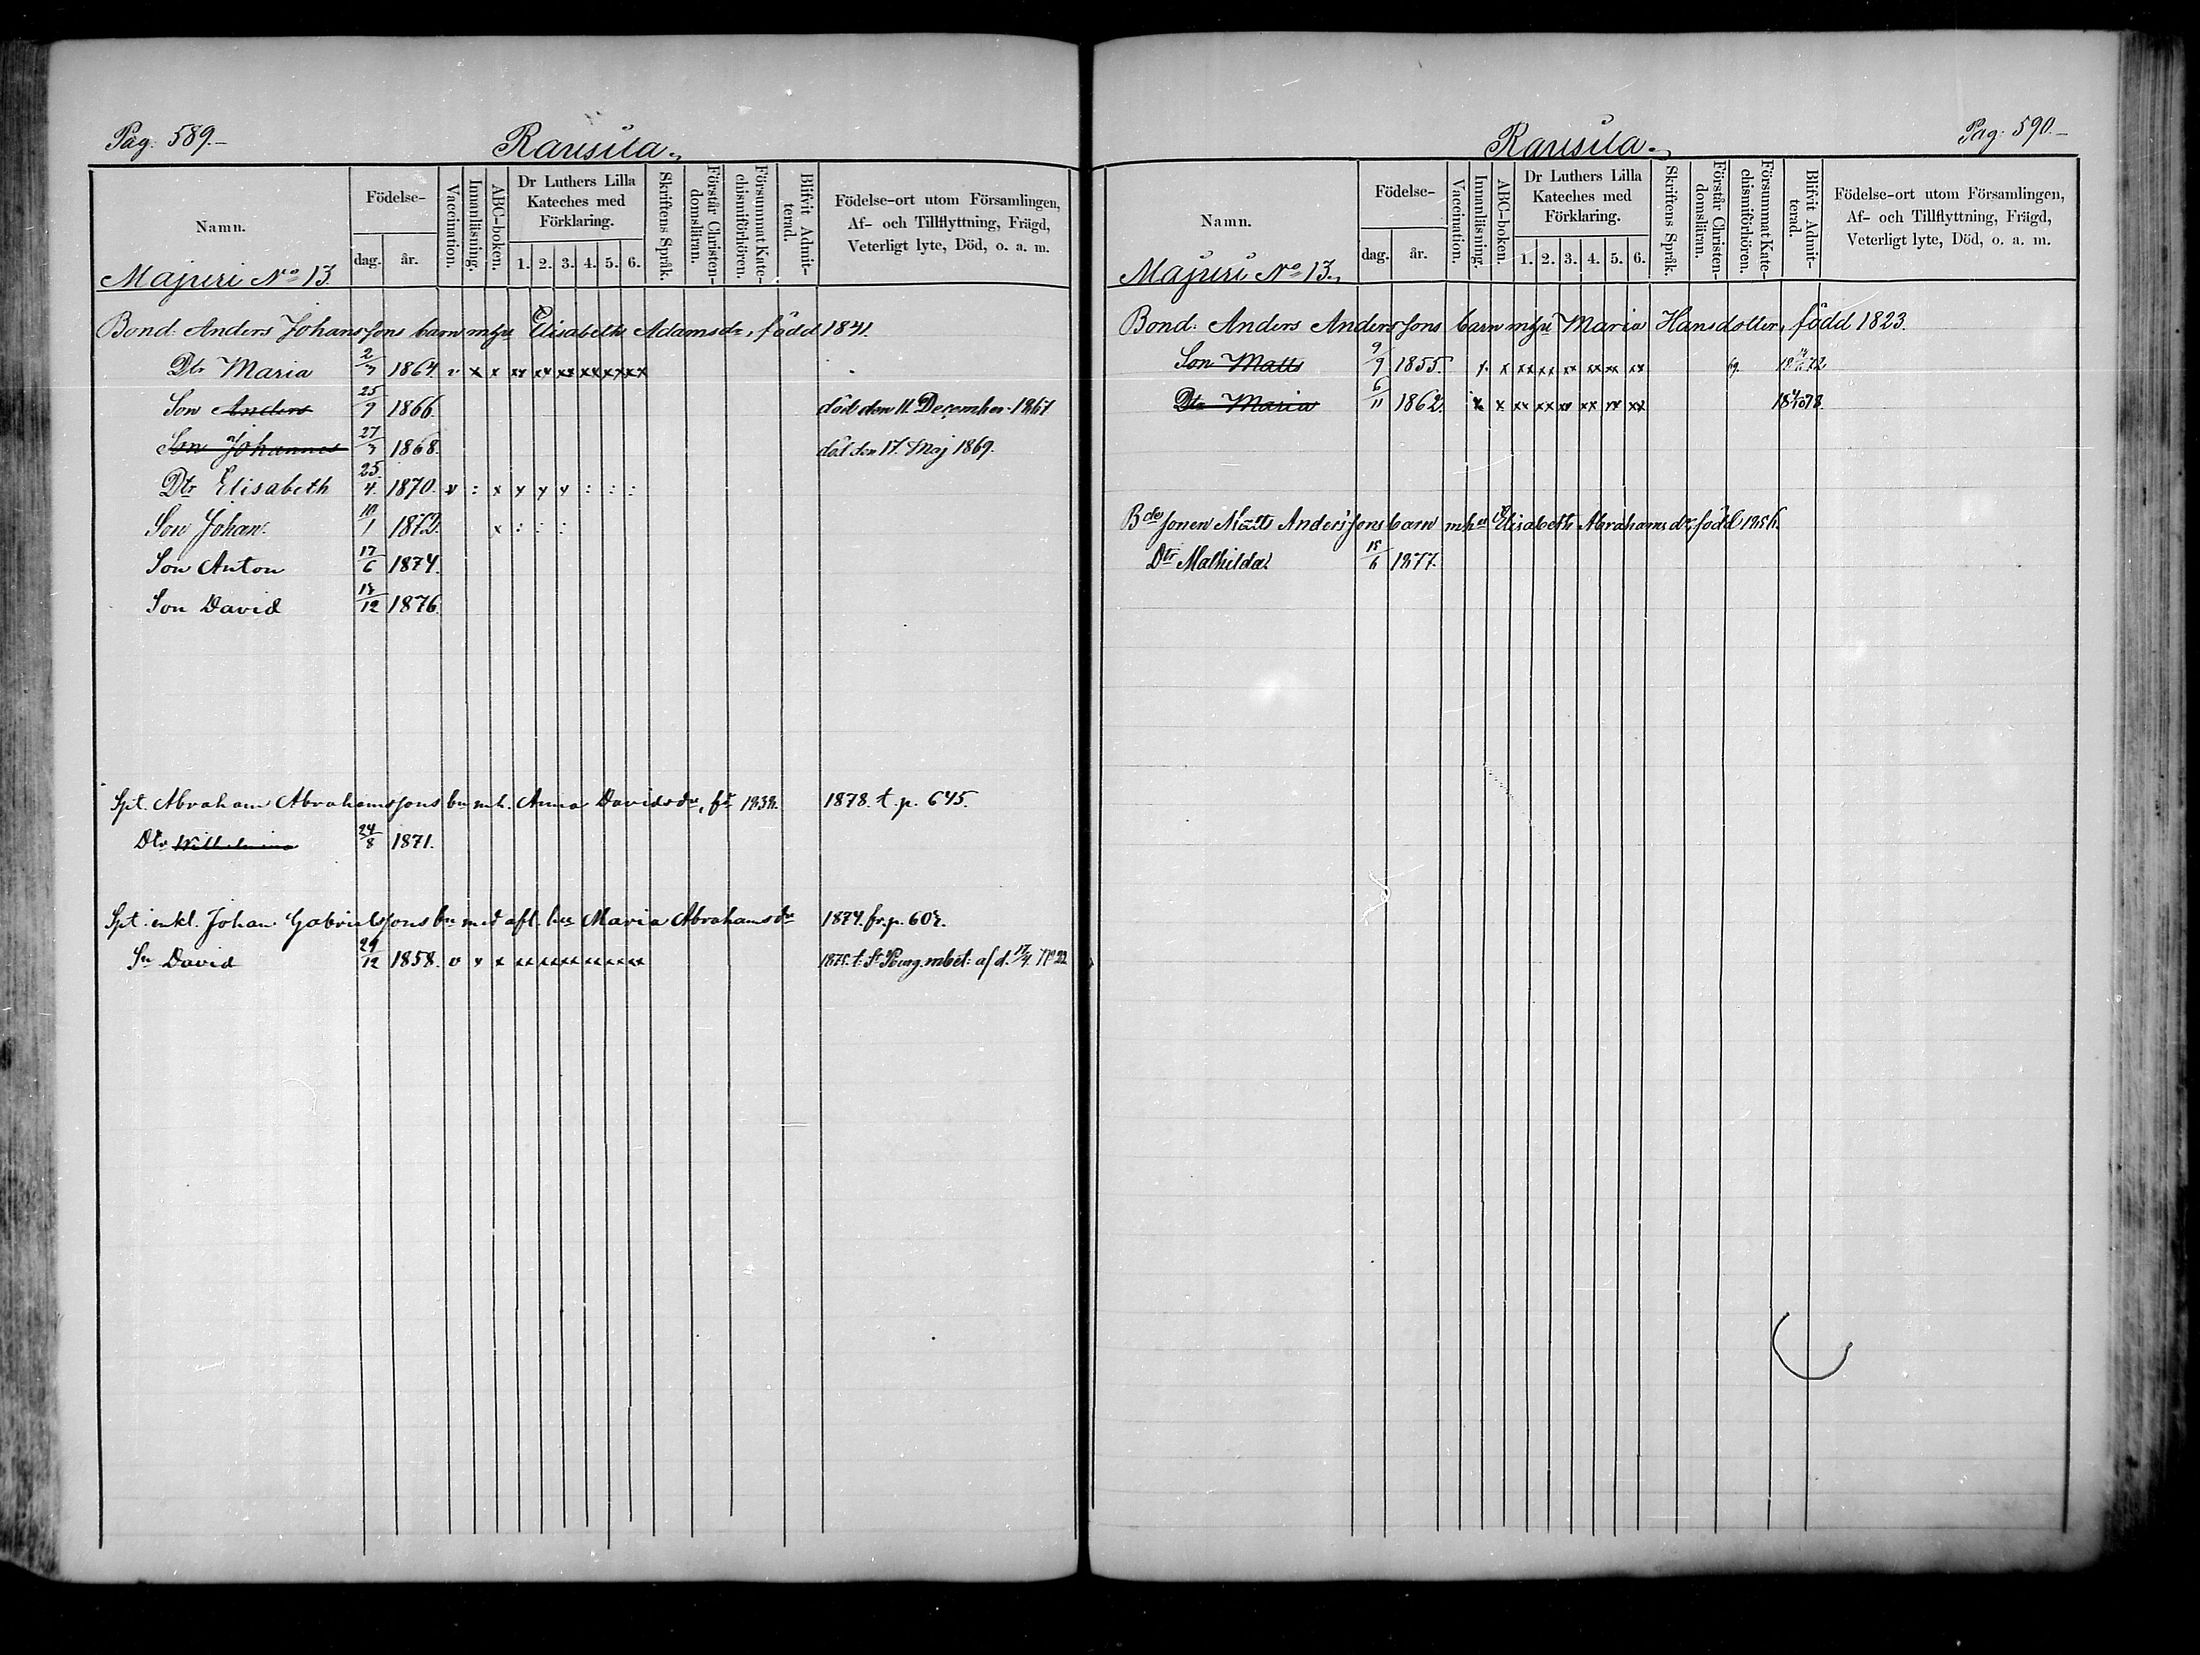 Pag: 589.
Rausila.
Namn.
Födelse-
dag.
år.
Vaccination.
Innanläsning.
ABC-boken.
Dr Luthers Lilla
Kateches med
Förklaring.
1. 2. 3. 4. 5. 6.
Skriftens Språk.
Förstår Christen-
domsläran.
Försummat Kate-
chismiförhören.
Blifvit Admit-
terad.
Födelse-ort utom Församlingen,
Af- och Tillflyttning, Frägd,
Veterligt lyte, Död, o. a. m.
Majuri No 13.
Bond: Anders Johanssons barn mhu Elisabeth Adamsdr, född 1841.
Dtr Maria 2/7 1864. v x x xx xx xx xx xx xx
Son Anders 25/9 1866. död den 11. December 1867
Son Johannes 27/7 1868. död den 17. Maj 1869.
Dtr Elisabeth 25/4. 1870. v : x y y y : : :
Son Johan. 10/1 1872. x : : :
Son Anton 17/6 1874.
Son David 18/12 1876.
Spt. Abraham Abrahamssons bn mh. Anna Davidsdr, fd 1838. 1878. t. p. 645.
Dtr Wilhelmina 24/8 1871.
Spt. enkl. Johan Gabrielssons bn med afl. hu Maria Abrahamsdr 1874. fr. p. 608.
Sn David 29/12 1858. v x x xx xx xx xx xx xx t. St Pburg. mbet: af d. 17/4. No 22
Pag: 590.
Rausila.
Namn.
Födelse-
dag.
år.
Vaccination.
Innanläsning.
ABC-boken.
Dr Luthers Lilla
Kateches med
Förklaring.
1. 2. 3. 4. 5. 6.
Skriftens Språk.
Förstår Christen-
domsläran.
Försummat Kate-
chismiförhören.
Blifvit Admit-
terad.
Födelse-ort utom Församlingen,
Af- och Tillflyttning, Frägd,
Veterligt lyte, Död, o. a. m.
Majuri No 13.
Bond: Anders Anderssons barn mhu Maria Hansdotter, född 1823.
Son Matts 9/9 1855. x x xx xx xx xx xx xx 69.
Dtr Maria 6/11 1862. x x xx xx xx xx xx xx
Bdesonen Matts Anderssons barn mhu Elisabeth Abrahamsdr, född 1856.
Dtr Mathilda 15/6 1877.